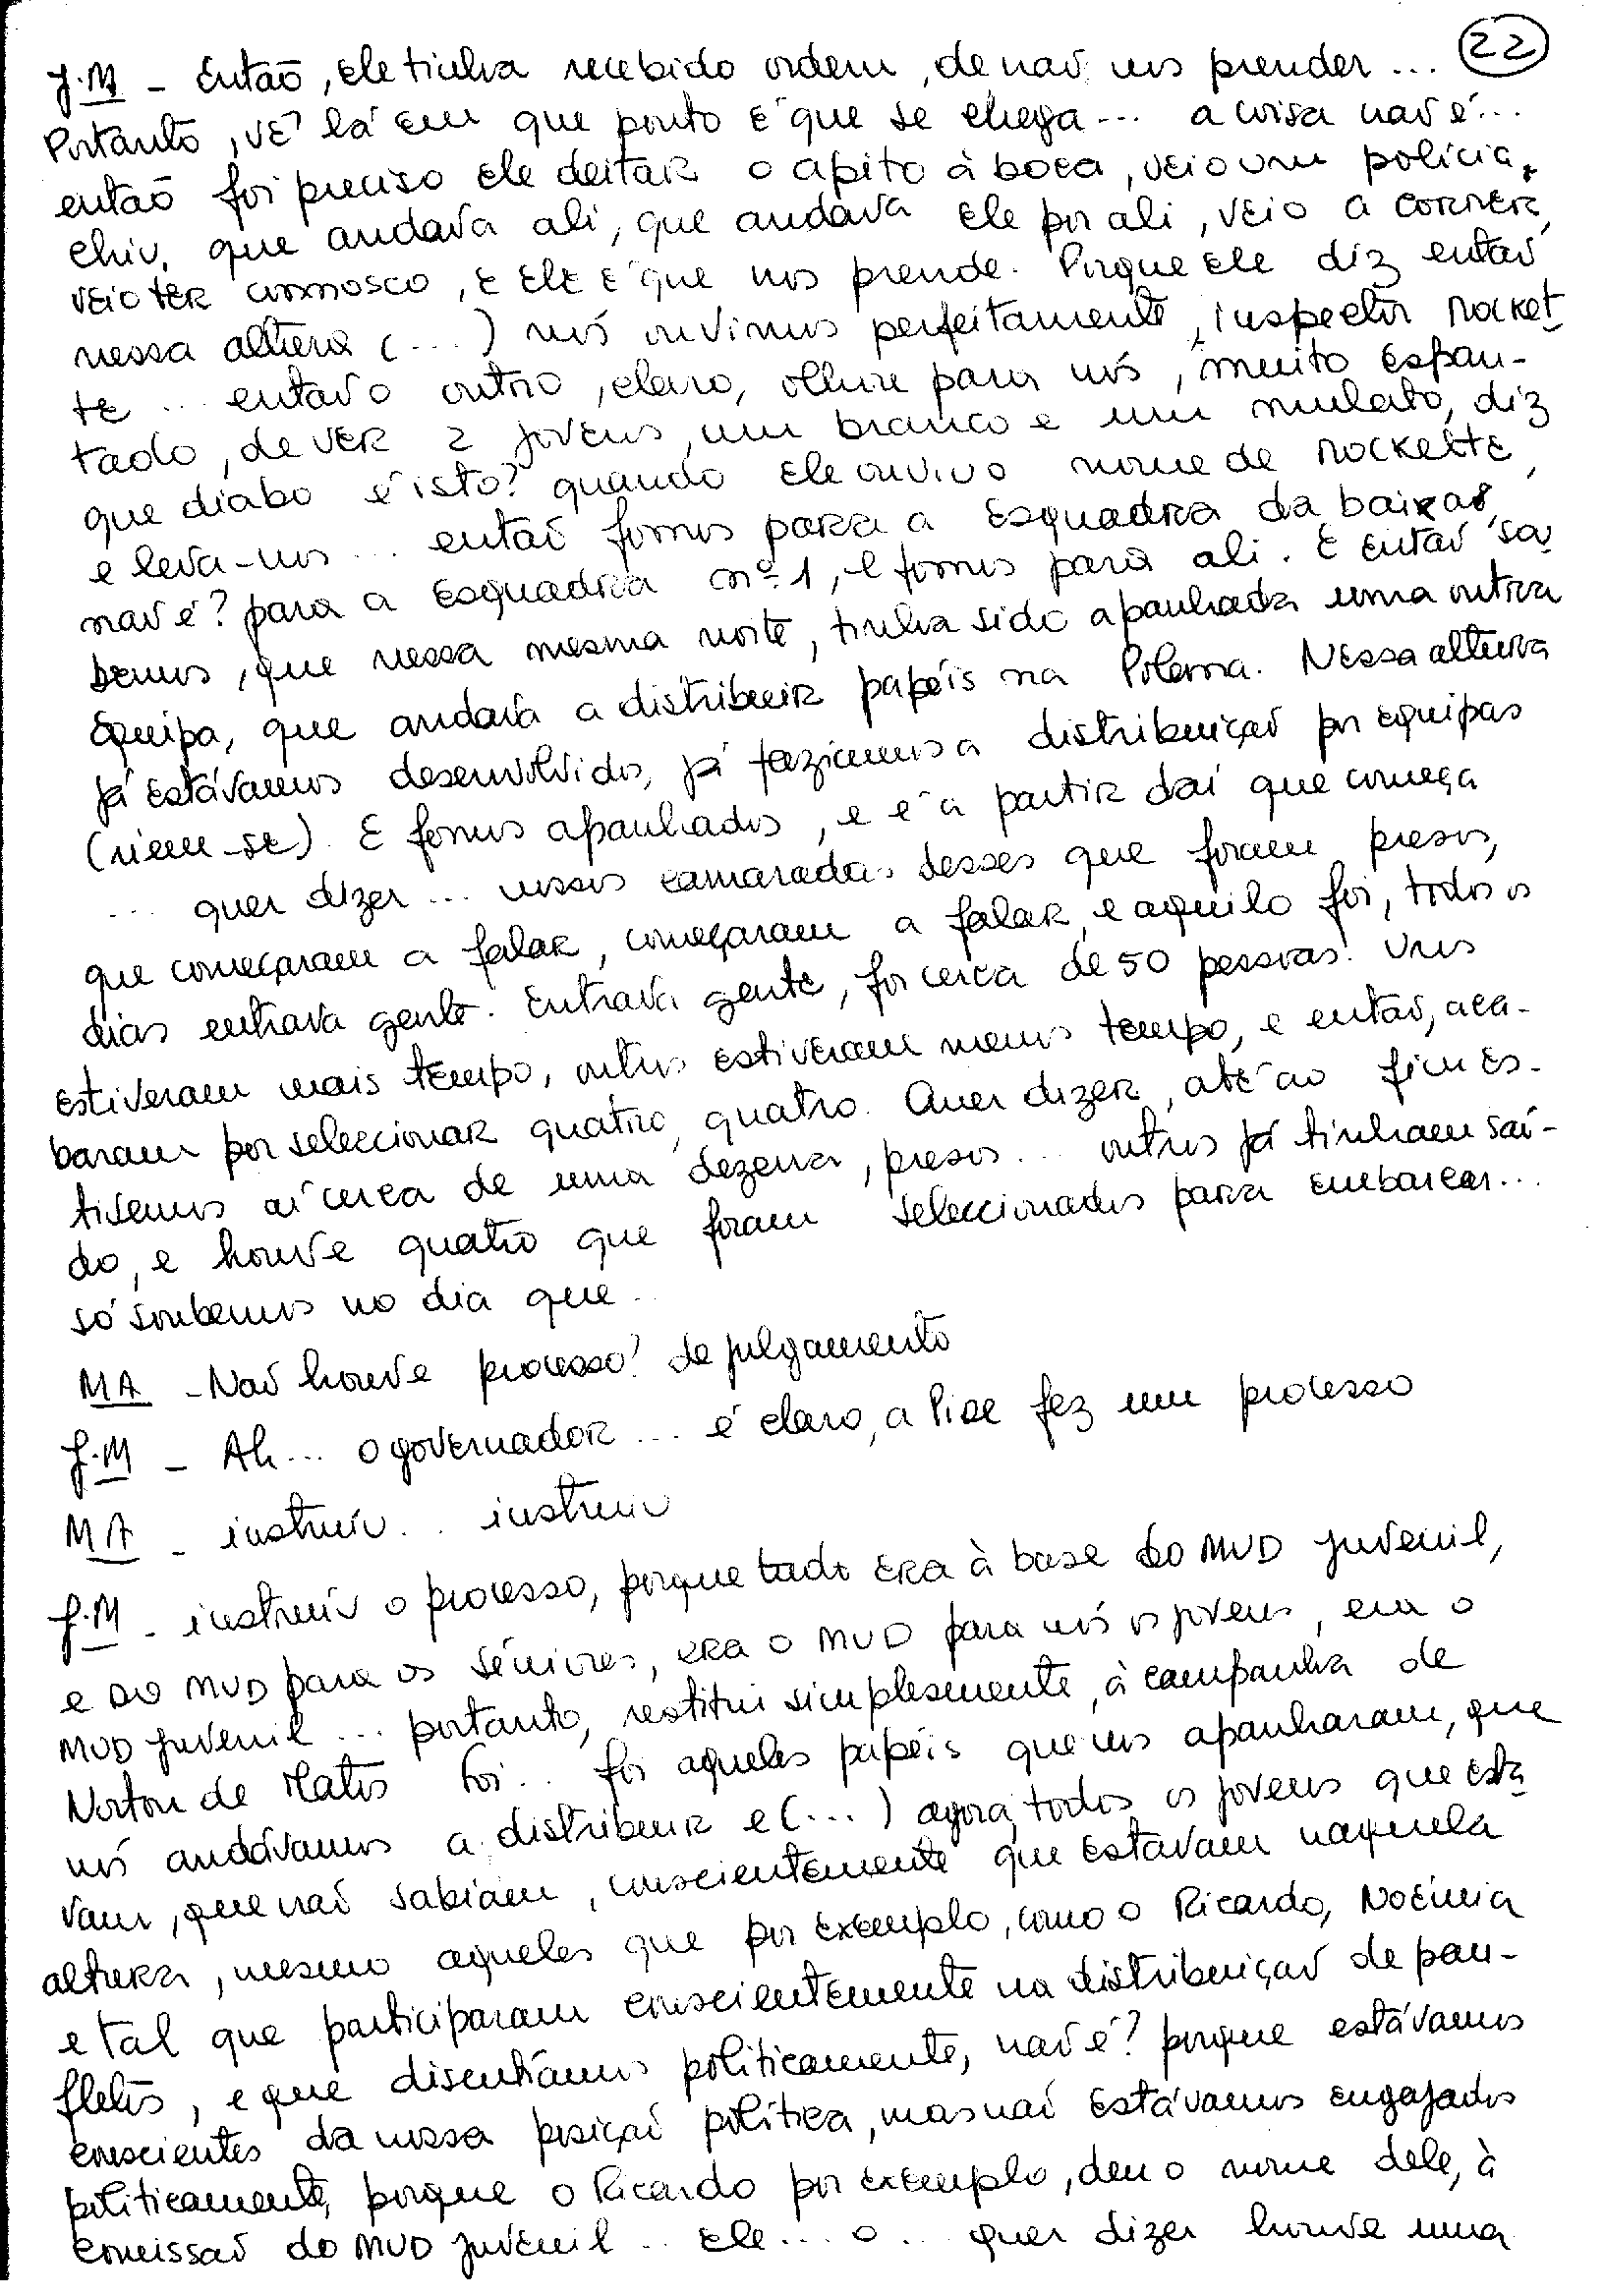 22
J.M - Então, ele tinha recebido ordem, de não nos prender...
Portanto, vê lá em que ponto é que se chega... a coisa não é...
então foi preciso ele deitar o apito à boca, veio um polícia,
que andava ali, que andava ele por ali, veio a correr,
veio ter connosco, e ele é que nos prende. Porque ele diz então
nessa altura (...) nós ouvimos perfeitamente, inspector Rocket
te... então o outro, claro, olhou para nós, muito espan-
tado, de ver 2 jovens, um branco e um mulato, diz
que diabo é isto? quando ele ouviu o nome de Rockette,
e leva-nos... então fomos para a Esquadra da baixa,
não é? para a Esquadra nº 1, e fomos para ali. E então sa
bemos, que nessa mesma noite, tinha sido apanhada uma outra
equipa, que andava a distribuir papéis na Polana. Nessa altura
já estávamos desenvolvidos, já fazíamos a distribuição por equipas
(riem-se). E fomos apanhados, e é a partir daí que começa
... quer dizer... nossos camaradas desses que foram presos,
que começaram a falar, começaram a falar, e aquilo foi, todos os
dias entrava gente. Entrava gente, foi cerca de 50 pessoas. Uns
estiveram mais tempo, outros estiveram menos tempo, e então, aca-
baram por seleccionar quatro, quatro. Quer dizer, até ao fim es-
tivemos aí cerca de uma dezena, presos... outros já tinham saí-
do, e houve quatro que foram seleccionados para embarcar...
só soubemos no dia que..
MA - Não houve processo? de julgamento
J.M - Ah... o governador... é claro, a Pide fez um processo
MA - instruiu... instruiu
J.M - instruiu o processo, porque tudo era à base do MUD juvenil,
e do MUD para os séniores, era o MUD para nós os jovens, era o
MUD juvenil... portanto, restitui simplesmente, à campanha de
Norton de Matos foi... foi aqueles papéis que nos apanharam, que
nós andávamos a distribuir e (...) agora, todos os jovens que esta
vam, que não sabiam, conscientemente que estavam naquela
altura, mesmo aqueles que por exemplo, como o Ricardo, Noémia
e tal que participaram conscientemente na distribuição de pan-
fletos, e que discutíamos politicamente, não é? porque estávamos
conscientes da nossa posição política, mas não estávamos engajados
politicamente, porque o Ricardo por exemplo, deu o nome dele, à
comissão do MUD juvenil.. ele... o... quer dizer houve uma